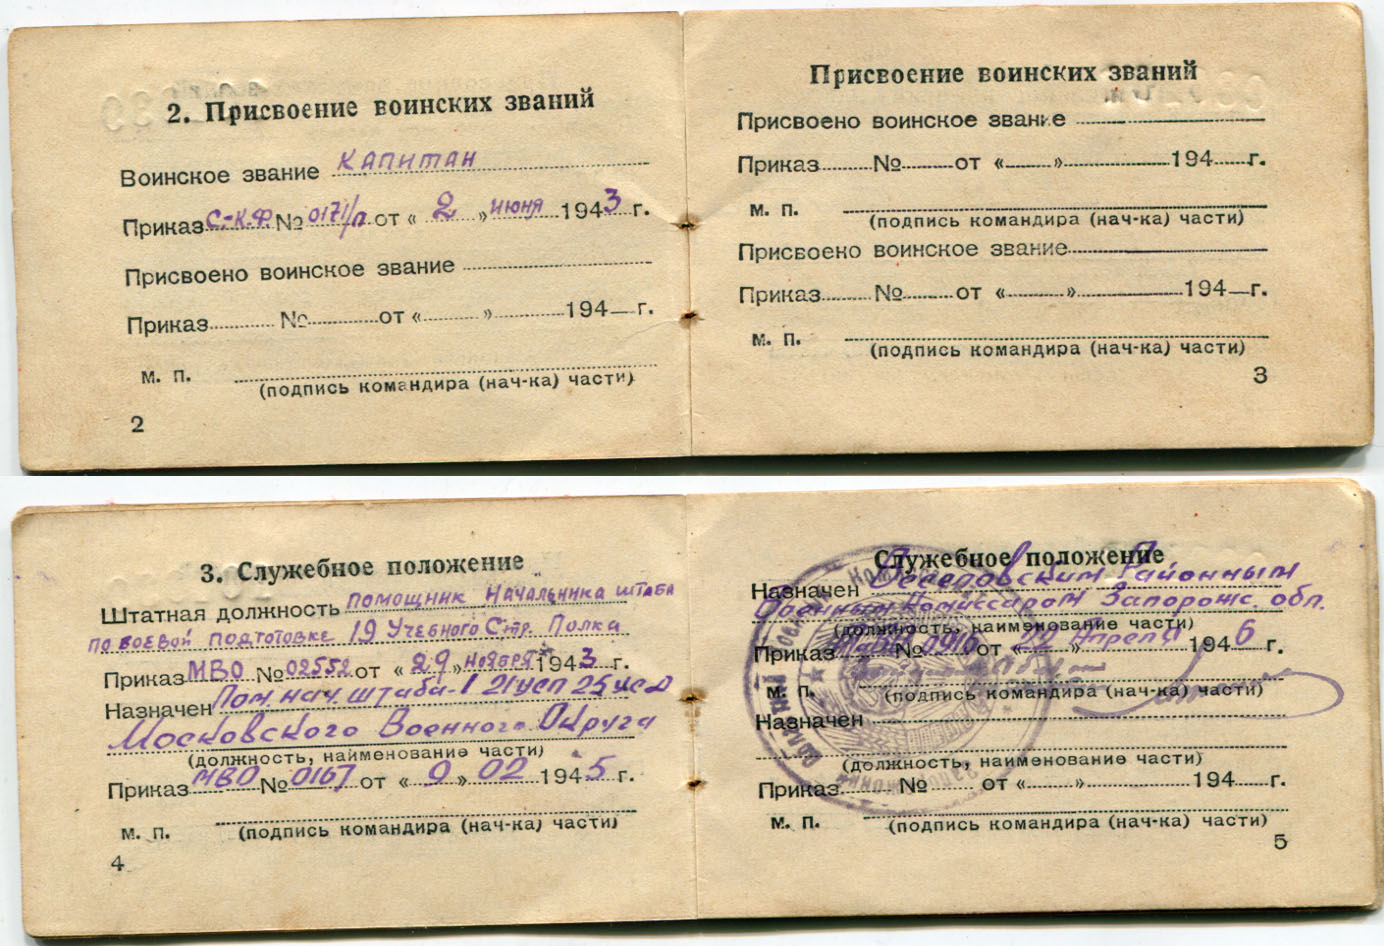 2. Присвоение воинских званий
Воинское звание КАПИТАН
Приказ С-К.Ф. № 0171/п от « 2 » июня 1943 г.
Присвоено воинское звание
Приказ № от « » 194 г.
м. п.
(подпись командира (нач-ка) части)
2
Присвоение воинских званий
Присвоено воинское звание
Приказ № от « » 194 г.
м. п.
(подпись командира (нач-ка) части)
Присвоено воинское звание
Приказ № от « » 194 г.
м. п.
(подпись командира (нач-ка) части)
3
3. Служебное положение
Штатная должность помощник Начальника штаба
по боевой подготовке 19 Учебного Стр. Полка
Приказ МВО № 02552 от « 29 » ноября 1943 г.
Назначен Пом. нач. штаба-1 21 УСП 25 УСД
Московского Военного Округа
(должность, наименование части)
Приказ МВО № 0167 от « 9 » 02 1945 г.
м. п. (подпись командира (нач-ка) части)
4
Служебное положение
Назначен Веселовским Районным
Военным Комиссаром Запорожс. обл.
(должность, наименование части)
Приказ № 0910 от « 22 Апреля 1946 г.
м. п. (подпись командира (нач-ка) части)
Назначен
(должность, наименование части)
Приказ № от « » 194 г.
м. п. (подпись командира (нач-ка) части)
5